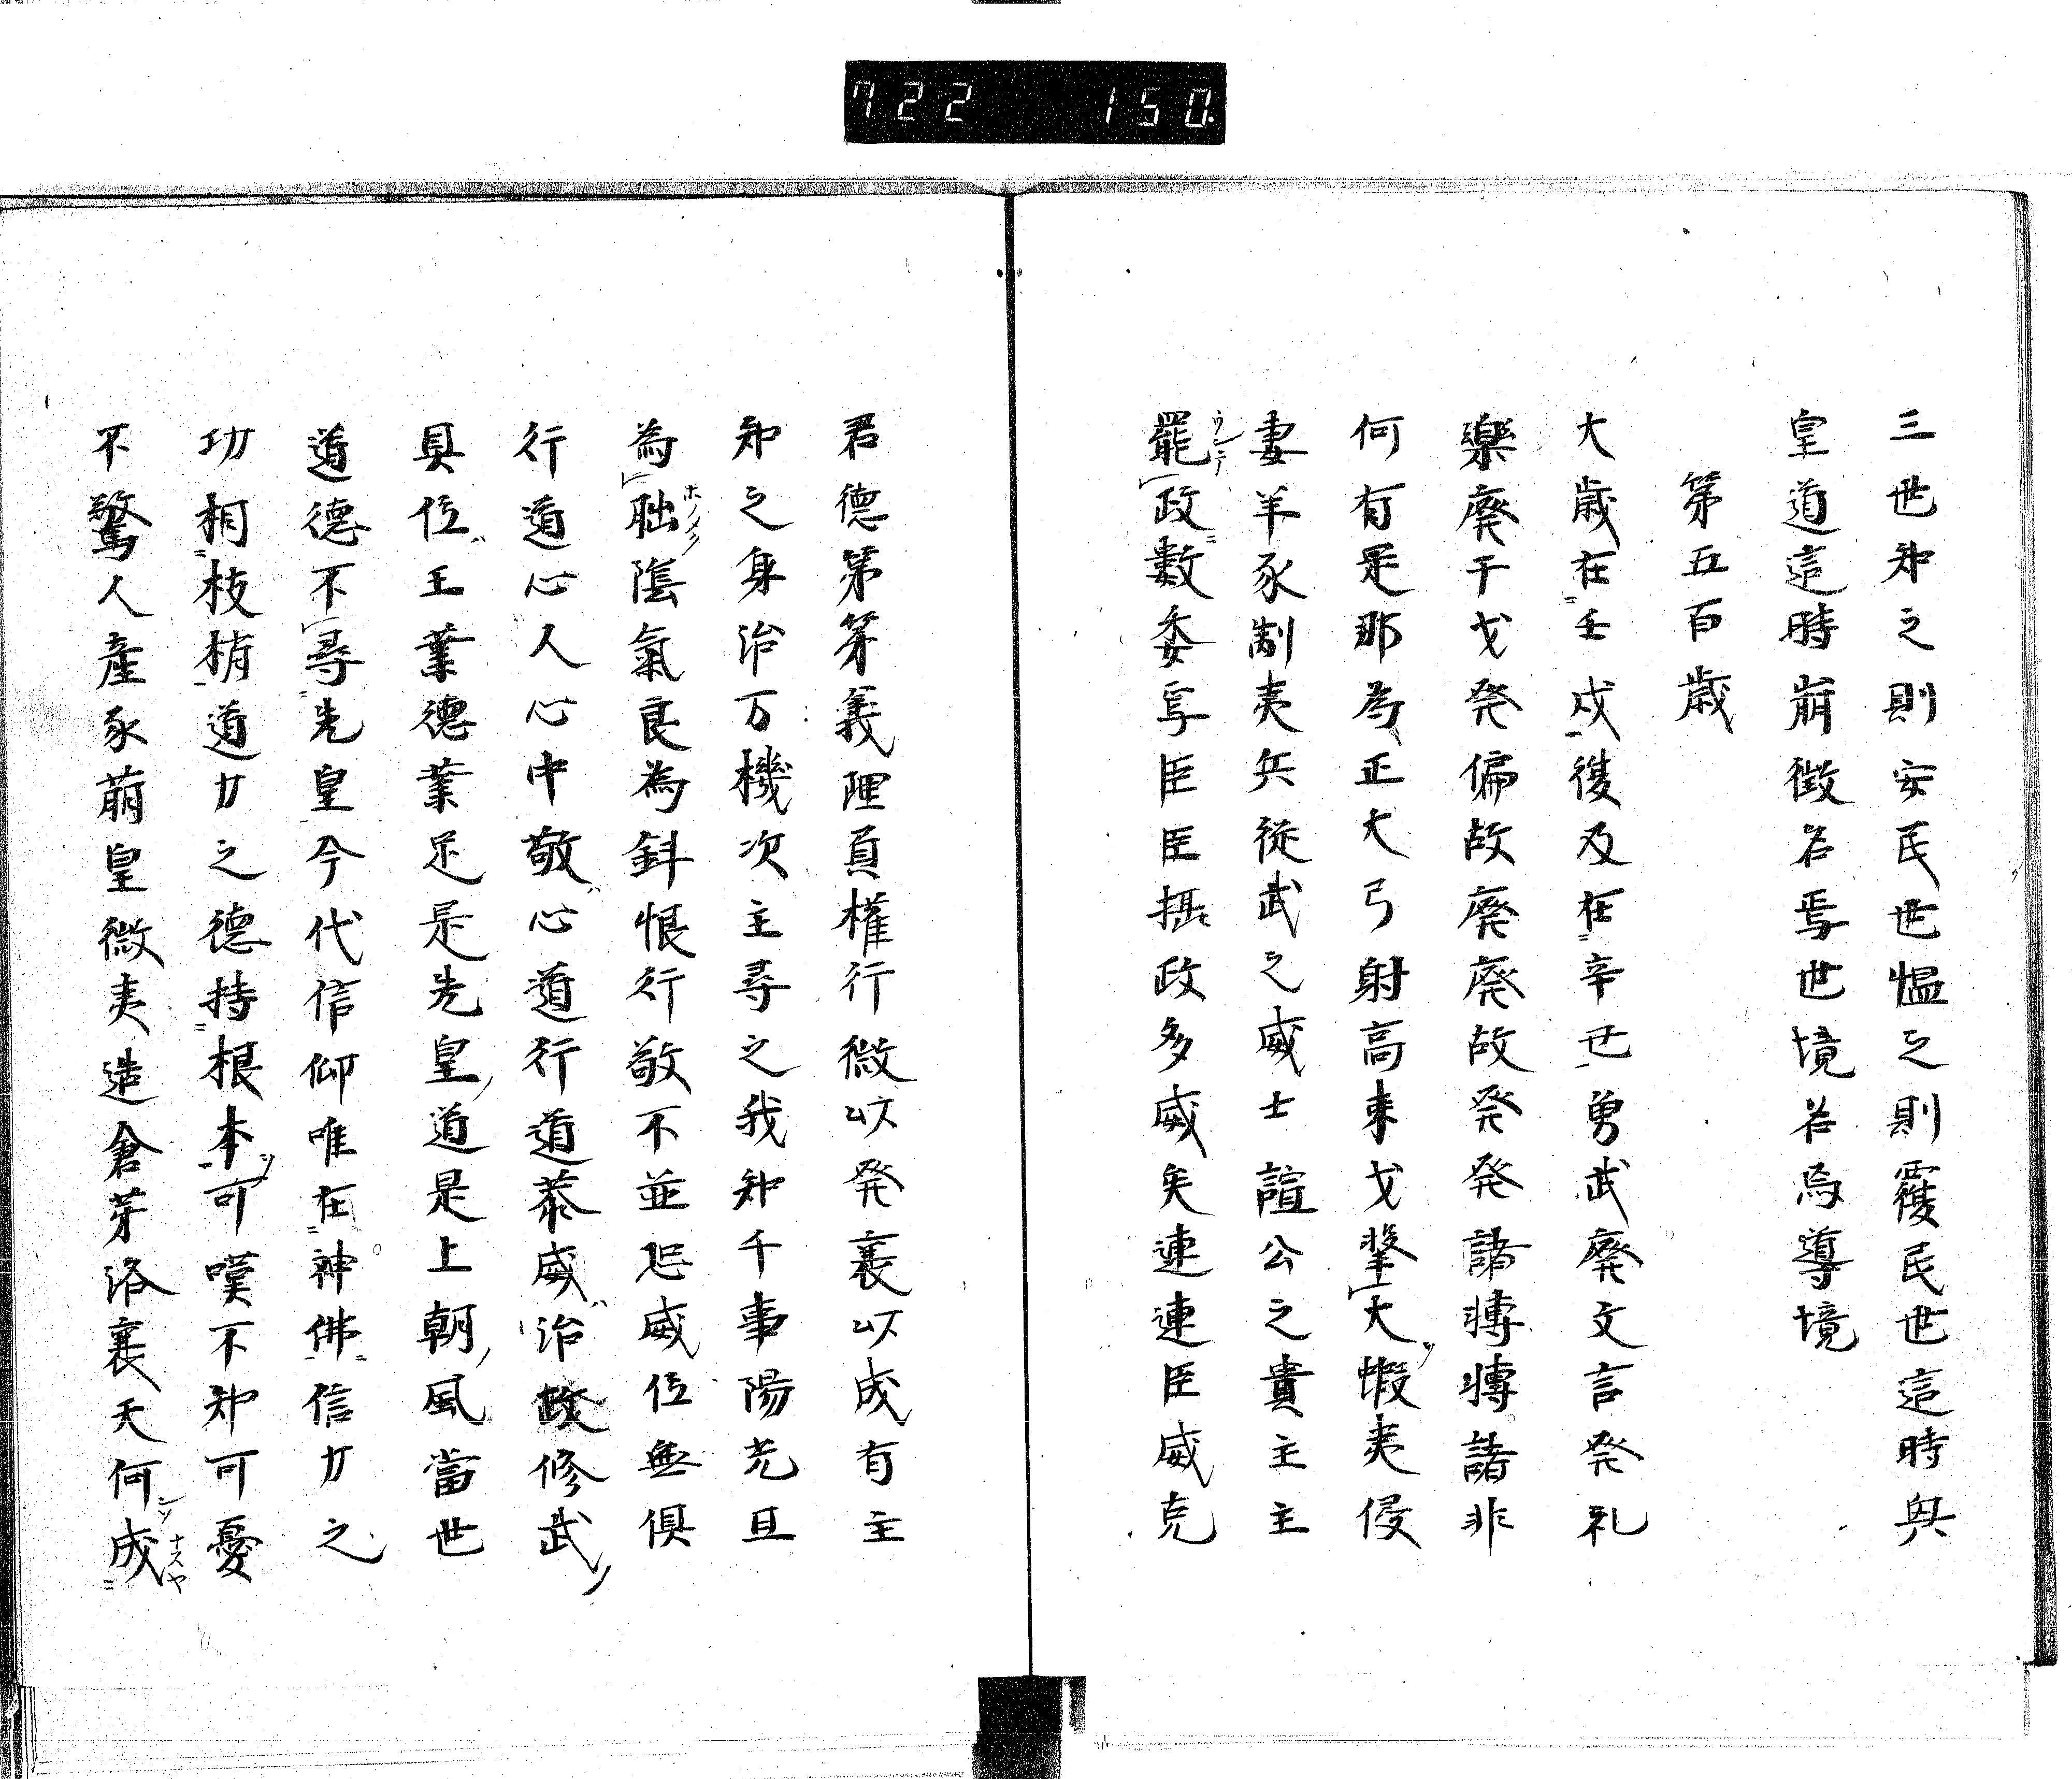 722 150.
三世知之則安民世愠之則覆民世這時與
皇道這時崩徴名焉世境名為導境
第五百歳
大歳在壬戌復及在辛巳勇武廃文言発礼
樂廃干戈発偏故廃廃故発発諸轉轉諸非
何有是那為正大弓射高東戈挙大蝦夷侵
妻羊豕制夷兵従武之威士諠公之貴主主
罷政數委焉臣臣摂政多威矣連連臣威克
君德第第義理負權行微以発襄以成有主
知之身治万機次主尋之我知千事陽光旦
為朏陰氣良為斜恨行敬不並㤙威位無俱
行道心人心中敬心道行道恭威治政修武
具位王業德業足是先皇道是上朝風當世
道德不尋先皇今代信仰唯在神佛信力之
功相枝梢道力之德持根本可嘆不知可憂
不驚人産豕萠皇微夷造倉芽洛襄天何成